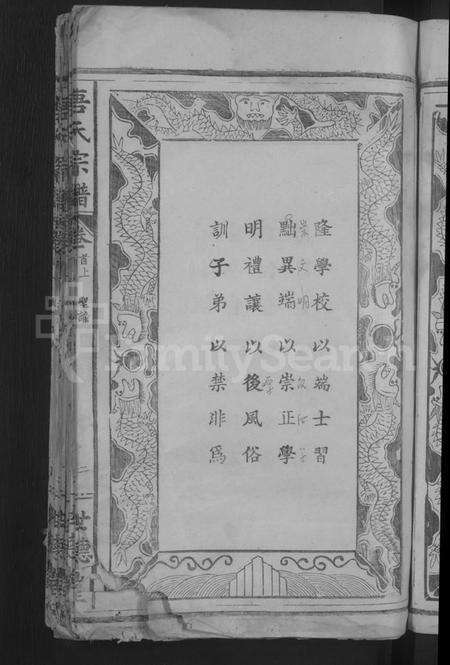 隆學校以端士習
黜異端以崇正學
明禮讓以後風俗
訓子弟以禁非為
厚
氏宗譜
卷首上
聖諭
世德堂
FamilySearch